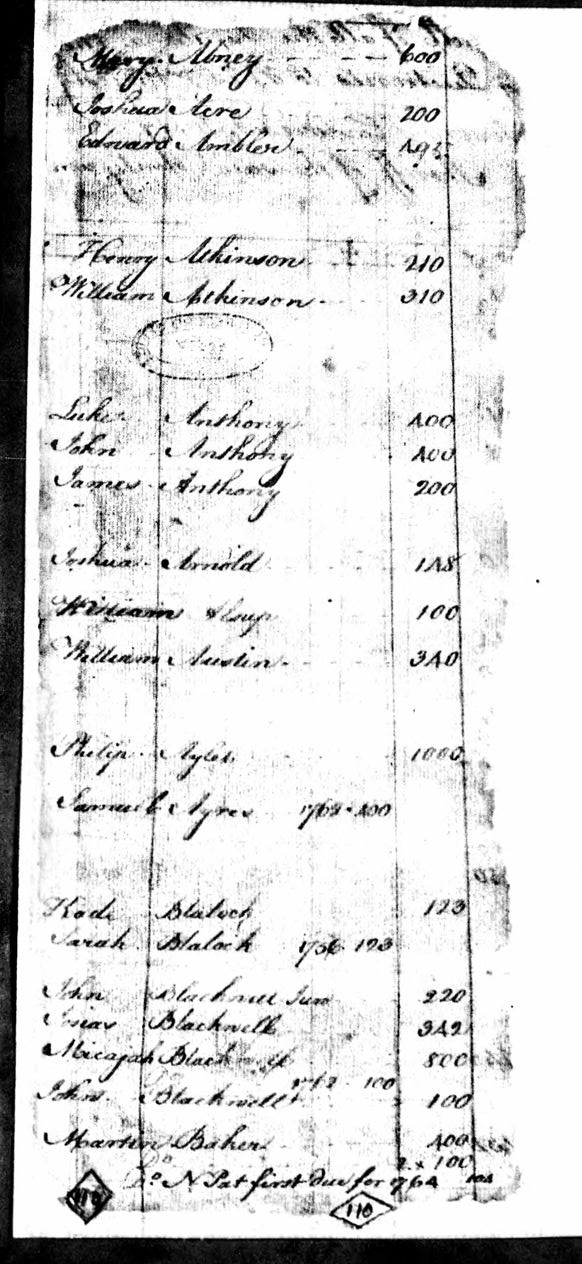 Mary Abney 600
Joshua Acre 200
Edward Ambler
Henry Atkinson 210
William Atkinson 310
Luke Anthony 400
John Anthony 400
James Anthony 200
Joshua Arnold 148
William Alsup 100
William Austin 340
Philip Aylet 1000
Samuel Ayres 1762 - 400
Kade Blalock 123
Sarah Blalock 1756 123
John Blackwell Junr 220
Josias Blackwell 342
Micajah Blackwell 800
1762 - 100
John Blackwell 100
Martin Baker 400
Do 100
Do N Pat first due for 1764 104
110 110